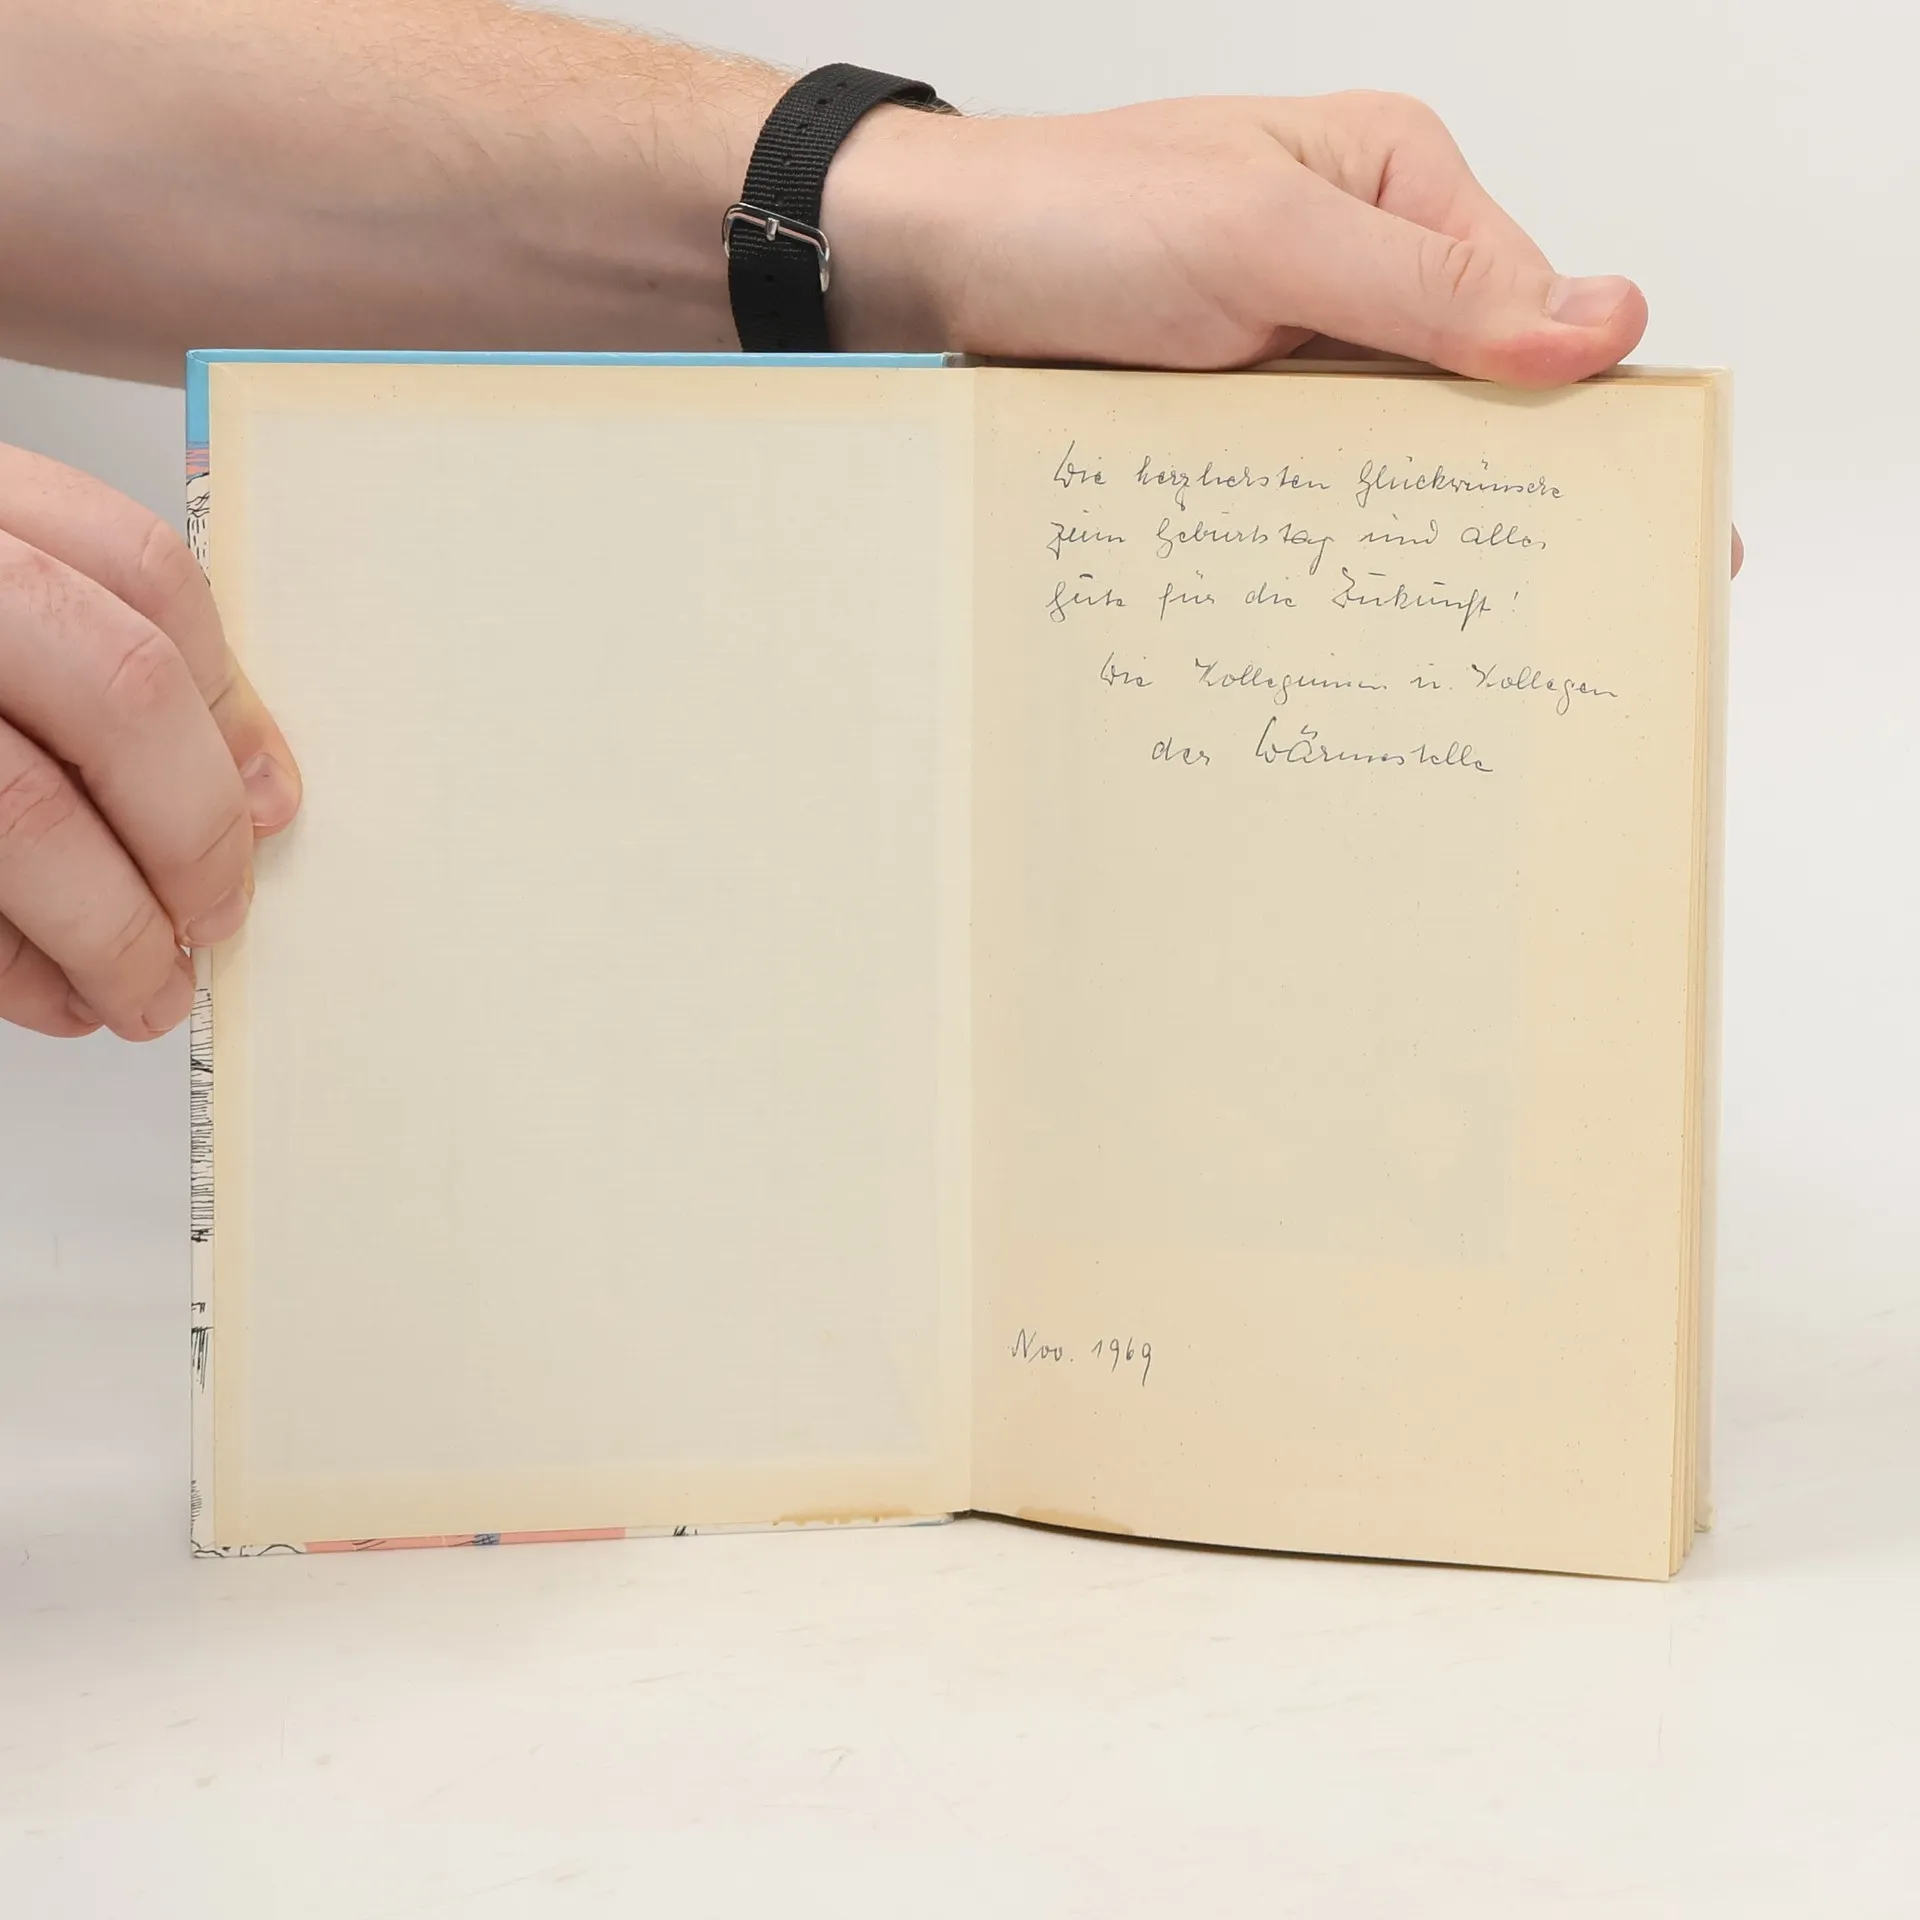 Die herzlichsten Glückwünsche
zum Geburtstag und alles
Gute für die Zukunft!
Die Kolleginnen u. Kollegen
der Wärmestelle
Nov. 1969